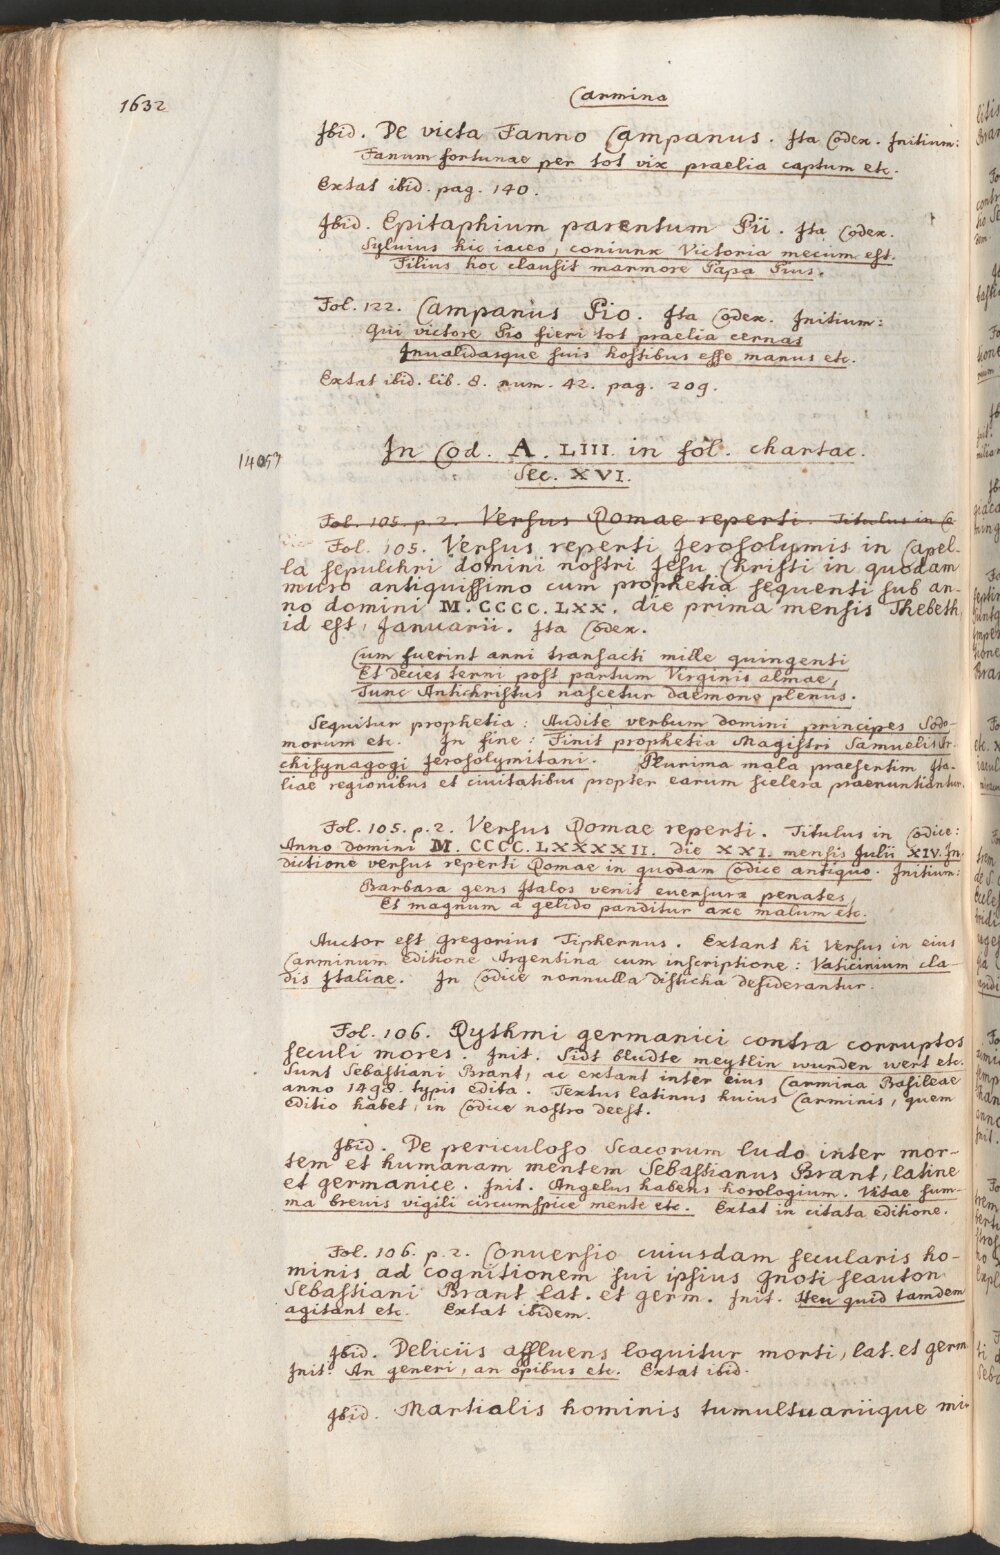 1632
Carmina
Ibid. De victa Fanno Campanus. Ita Codex. Initium:
Fanum fortunae per tot vix praelia captum etc.
Extat ibid. pag. 140.
Ibid. Epitaphium parentum Pii. Ita Codex.
Sylvius hic iaceo, coniunx Victoria mecum est.
Filius hoc clausit marmore Papa Pius.
Fol. 122. Campanus Pio. Ita Codex. Initium:
Qui victore Pio fieri tot praelia cernas
Invalidasque suis hostibus esse manus etc.
Extat ibid. lib. 8. num. 42. pag. 209.
14053
In Cod. A. LIII. in fol. chartac.
Sec. XVI.
Fol. 105. p. 2. Versus Romae reperti. Titulus in C
Fol. 105. Versus reperti Jerosolymis in Capel-
la sepulchri domini nostri Jesu Christi in quodam
muro antiquissimo cum prophetia sequenti sub an-
no domini M.CCCC.LXX. die prima mensis Thebeth,
id est, Januarii. Ita Codex.
Cum fuerint anni transacti mille quingenti
Et decies terni post partum Virginis almae,
Tunc Antichristus nascetur daemone plenus.
Sequitur prophetia: Audite verbum domini principes Sodo-
morum etc. In fine: Finit prophetia Magistri Samuelis Ar-
chisynagogi Jerosolymitani. Plurima mala praesertim Ita-
liae regionibus et civitatibus propter earum scelera praenuntiantur.
Fol. 105. p. 2. Versus Romae reperti. Titulus in Codice:
Anno domini M.CCCC.LXXXXII. die XXI. mensis Julii XIV. In-
dictione versus reperti Romae in quodam Codice antiquo. Initium:
Barbara gens Italos venit eversura penates,
Et magnum a gelido panditur axe malum etc.
Auctor est Gregorius Tiphernus. Extant hi Versus in eius
Carminum Editione Argentina cum inscriptione: Vaticinium cla-
dis Italiae. In Codice nonnulla disticha desiderantur.
Fol. 106. Rythmi germanici contra corruptos
seculi mores. Init. Sidt bludte meytlin wunden wert etc.
Sunt Sebastiani Brant, ac extant inter eius Carmina Basileae
anno 1498. typis edita. Textus latinus huius Carminis, quem
Editio habet, in Codice nostro deest.
Ibid. De periculoso Scacorum ludo inter mor-
tem et humanam mentem Sebastianus Brant, latine
et germanice. Init. Angelus habens horologium. Vitae sum-
ma brevis vigili circumspice mente etc. Extat in citata editione.
Fol. 106. p. 2. Conversio cuiusdam secularis ho-
minis ad cognitionem sui ipsius Gnoti seauton
Sebastiani Brant lat. et germ. Init. Heu quid tamdem
agitant etc. Extat ibidem.
Ibid. Deliciis affluens loquitur morti, lat. et germ
Init. An generi, an opibus etc. Extat ibid.
Ibid. Martialis hominis tumultuariique mi-